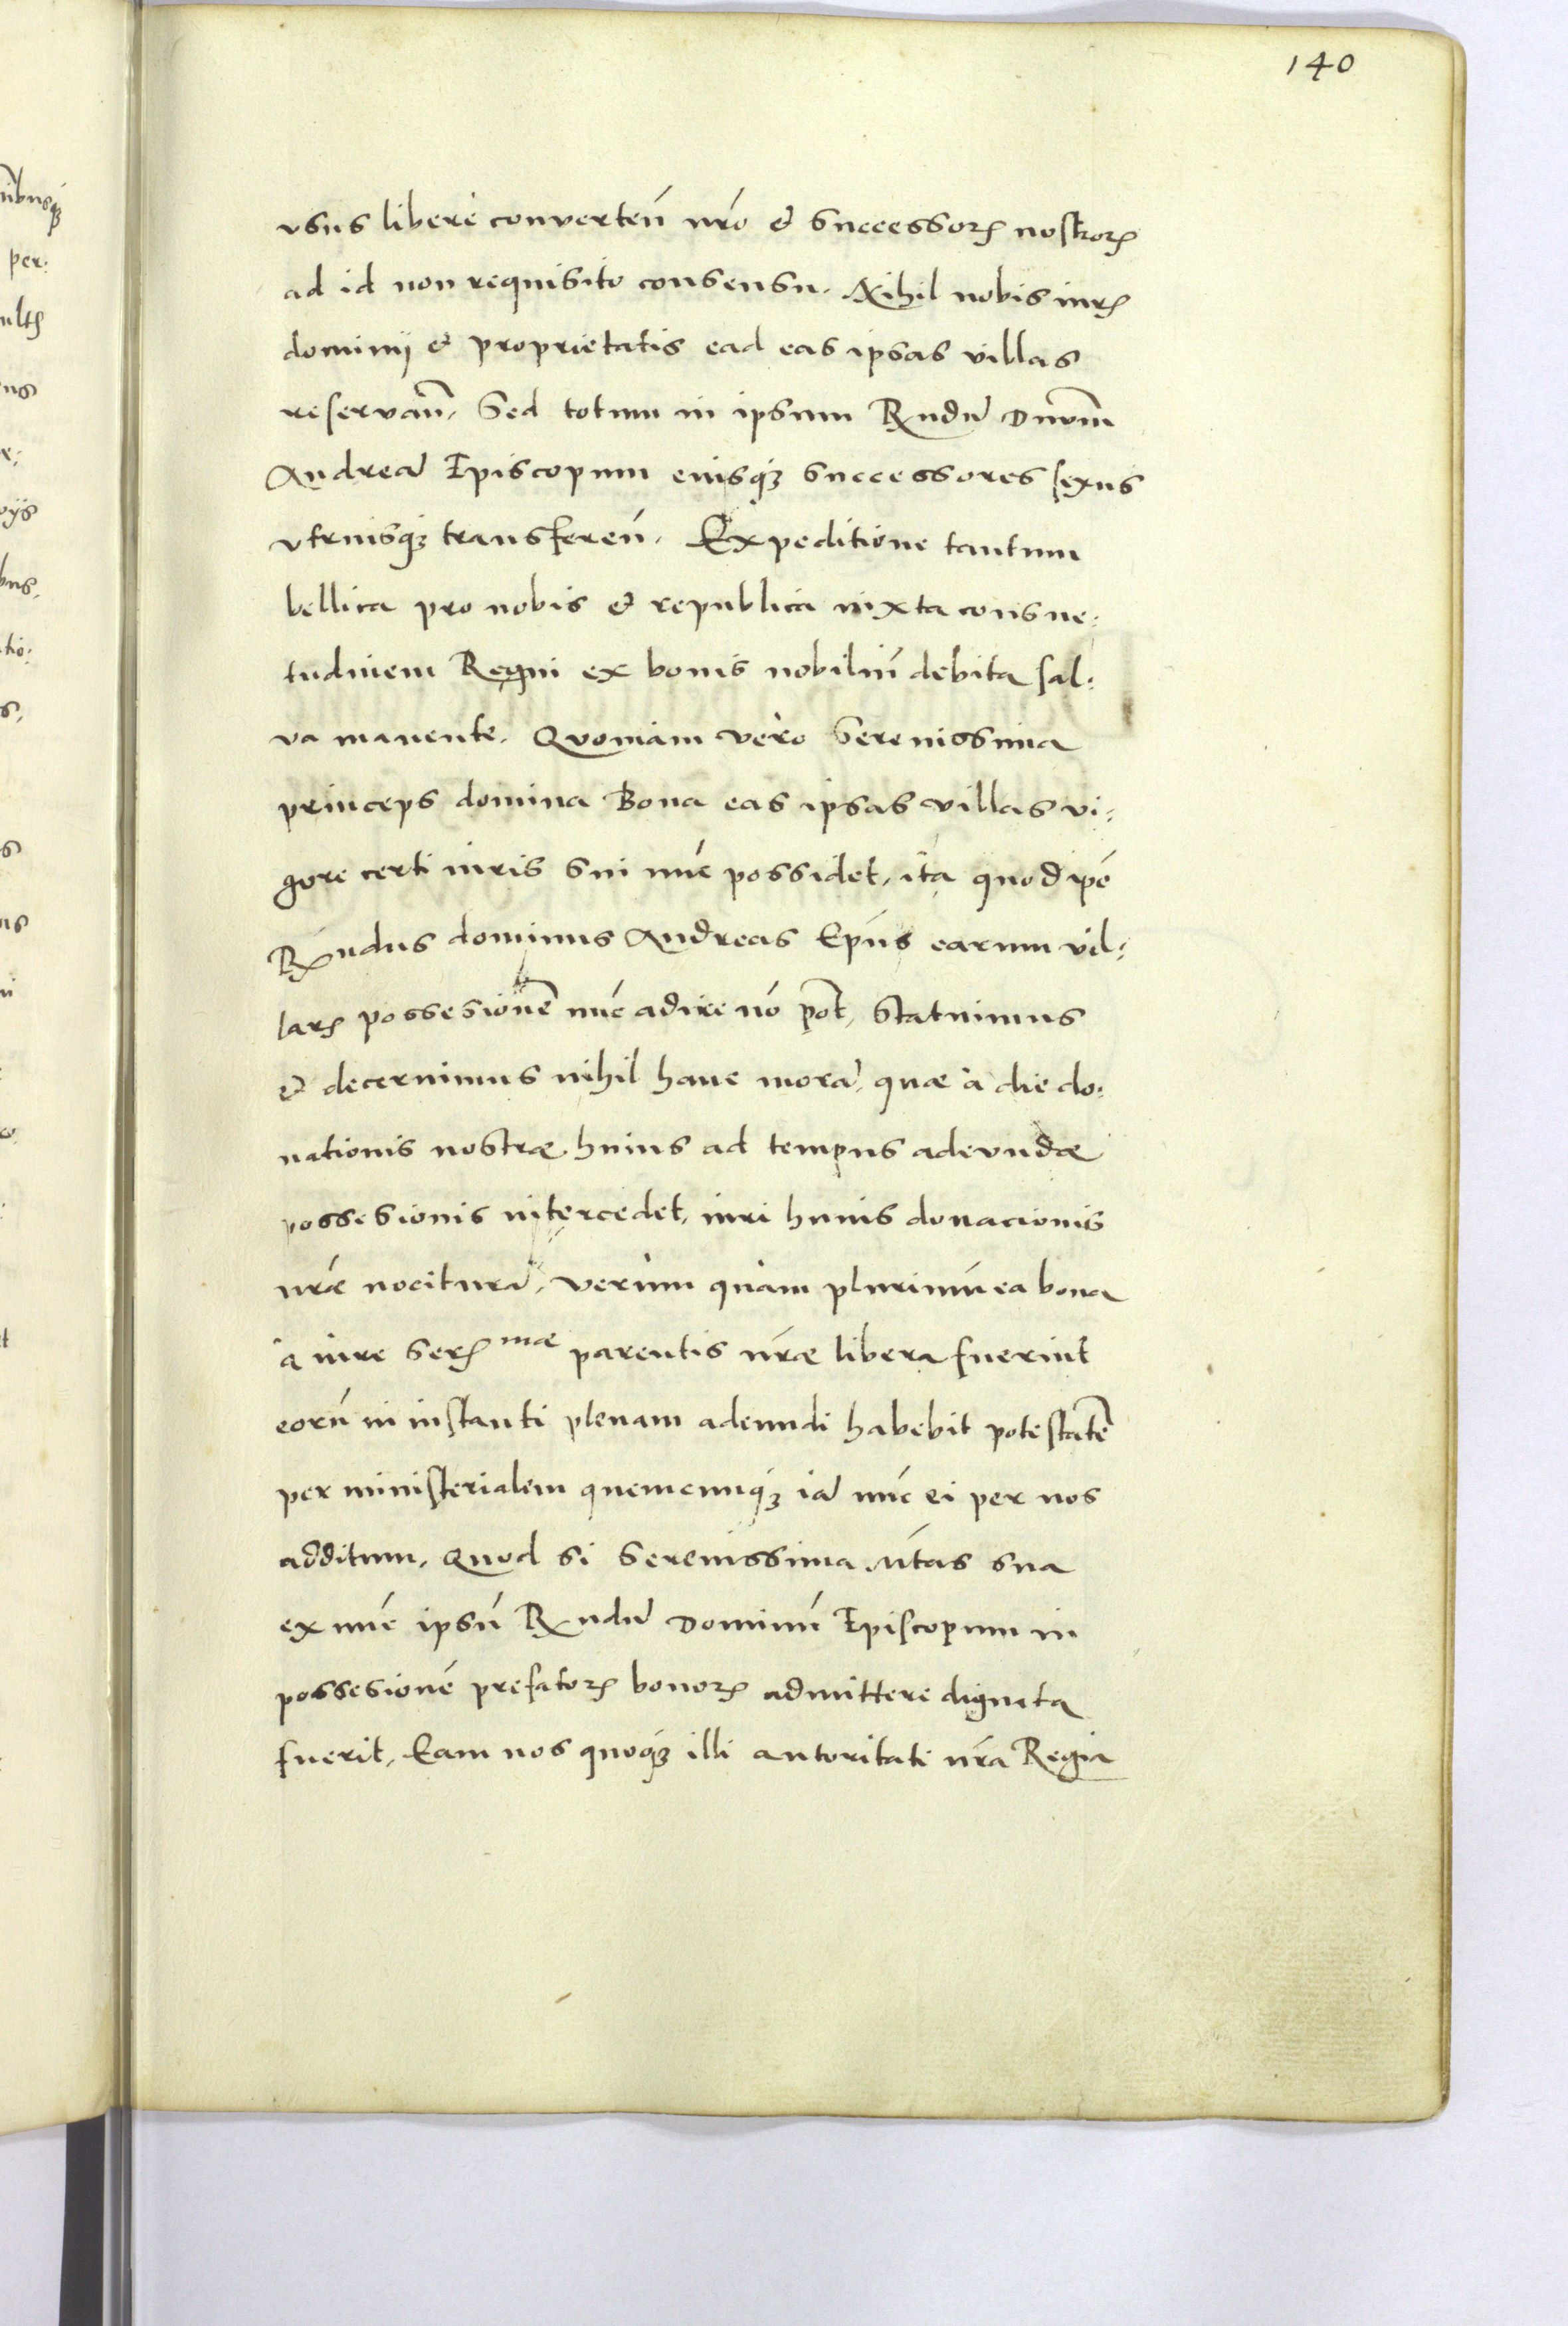 140
vsus liberè converteń nr̃o & successorꝝ nostrorꝝ
ad id non requisito consensu. Nihil nobis iurꝭ
dominij & proprietatis ead eas ipsas villas
reservań, Sed totum in ipsum Rndũ Dnvm̃
Andreã Episcopum eiusqȝ successores sexus
vtriusqȝ transfereń. Expeditione tantum
bellica pro nobis & republica iuxta consue:
tudinem Regni ex bonis nobiliũ debita sal:
va manente. Quoniam verò Serenissima
princeps domina Bona eas ipsas villas vi:
gore certi iuris sui nũc possidet, ita quod ipẽ
Rndus dominus Andreas Epũs earum vil:
larꝝ possesionẽ nũc adire nõ põt, Statuimus
& decernimus nihil hanc morã, quæ à die do:
nationis nostræ huius ad tempus adeundæ
possesionis intercedet, iuri huius donacionis
nr̃æ nociturã, verùm quàm plurimũ ea bona
à iure Serꝭ mæ parentis nr̃æ libera fuerint
eorũ in instanti plenam adeundi habebit potestatẽ
per ministerialem quemcunqȝ iã nũc ei per nos
additum. Quod si Serenissima Mtas sua
ex nũc ipsũ Rndũ Dominũ Episcopum in
possesionẽ prefatorꝝ bonorꝝ admittere dignata
fuerit, Eam nos quoqȝ illi autoritati nr̃a Regia